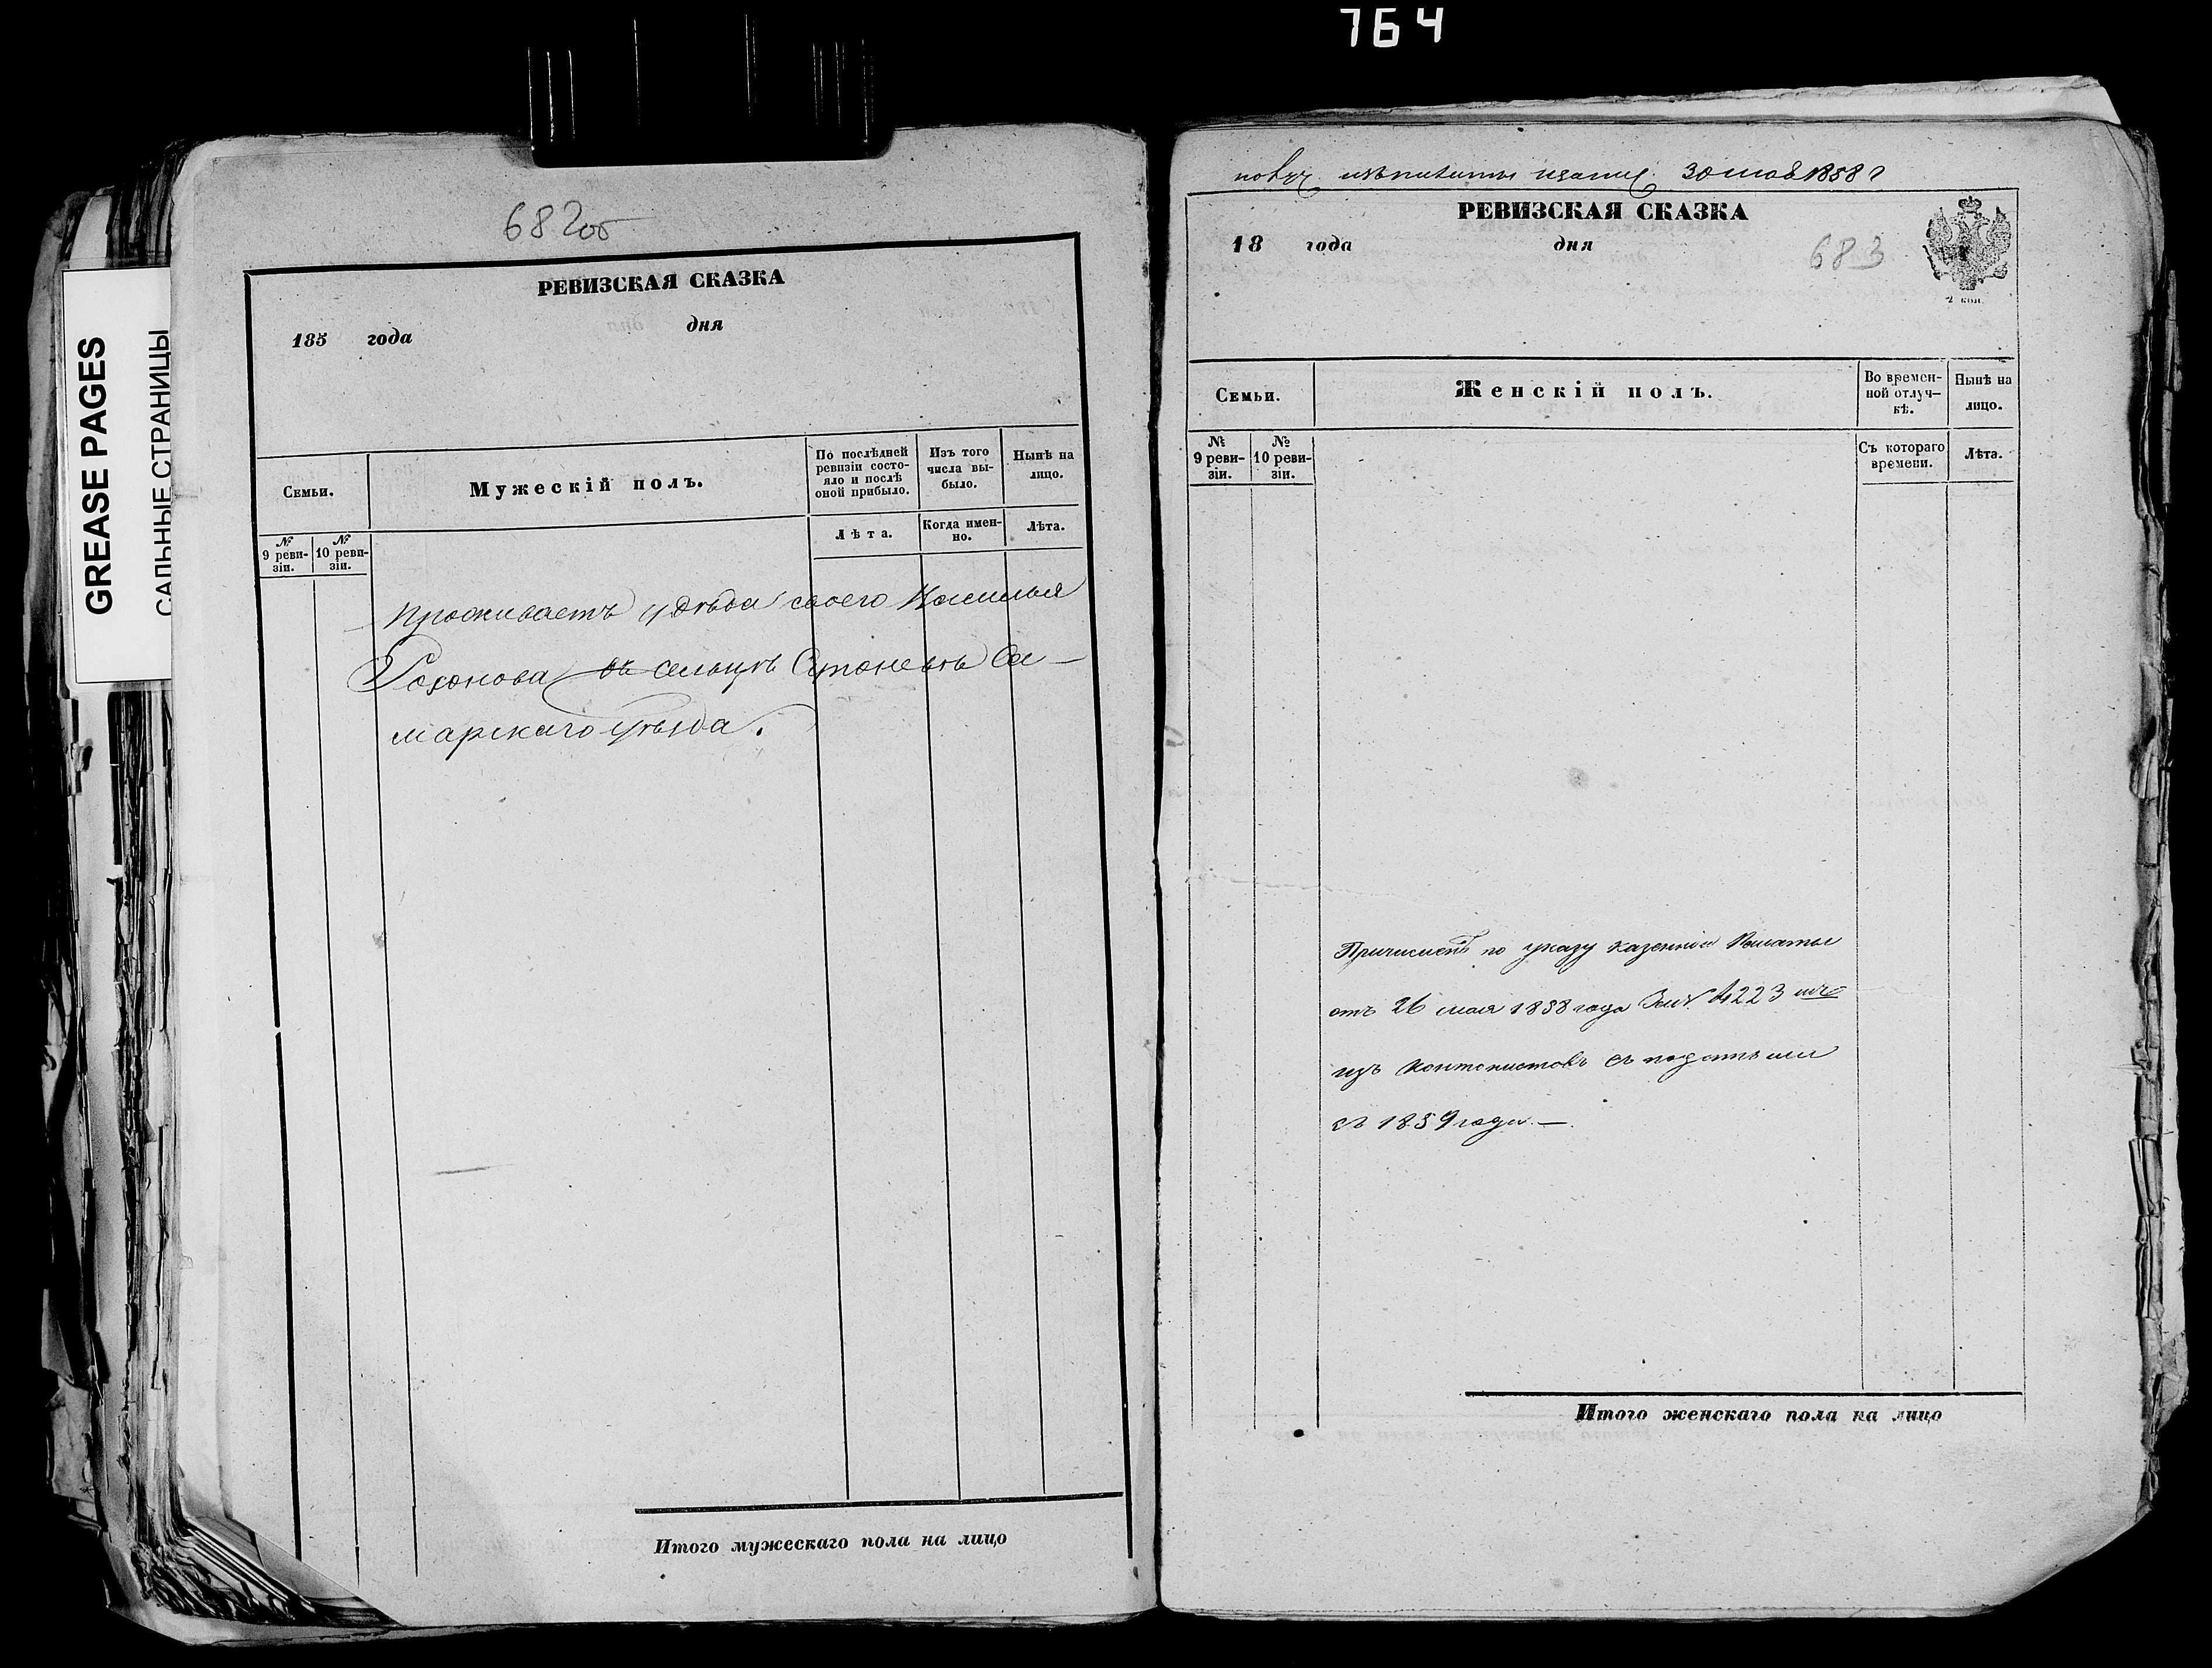 764
GREASE PAGES
САЛЬНЫЕ СТРАНИЦЫ
682об
РЕВИЗСКАЯ СКАЗКА
185 года дня
Семьи.
Мужескій полъ.
По послѣдней ревизіи состо-
яло и послѣ
оной прибыло.
Изъ того
числа вы-
было.
Нынѣ на
лицо.
№
9 реви-
зіи.
№
10 реви-
зіи.
Лѣта.
Когда имен-
но.
Лѣта.
Проживаетъ у дѣда своего
въ сельцѣ Са-
марскаго уѣзда.
Итого мужескаго пола на лицо
30 1858 г
РЕВИЗСКАЯ СКАЗКА
18 года дня
683
2 коп.
Семьи.
Женскій полъ.
Во времен-
ной отлуч-
кѣ.
Нынѣ на
лицо.
№
9 реви-
зіи.
№
10 реви-
зіи.
Съ котораго
времени.
Лѣта.
Причисленъ по указу казенной Палаты
отъ 26 мая 1858 года За № 4223
изъ кантонистовъ съ податьми
съ 1859 года. —
Итого женскаго пола на лицо